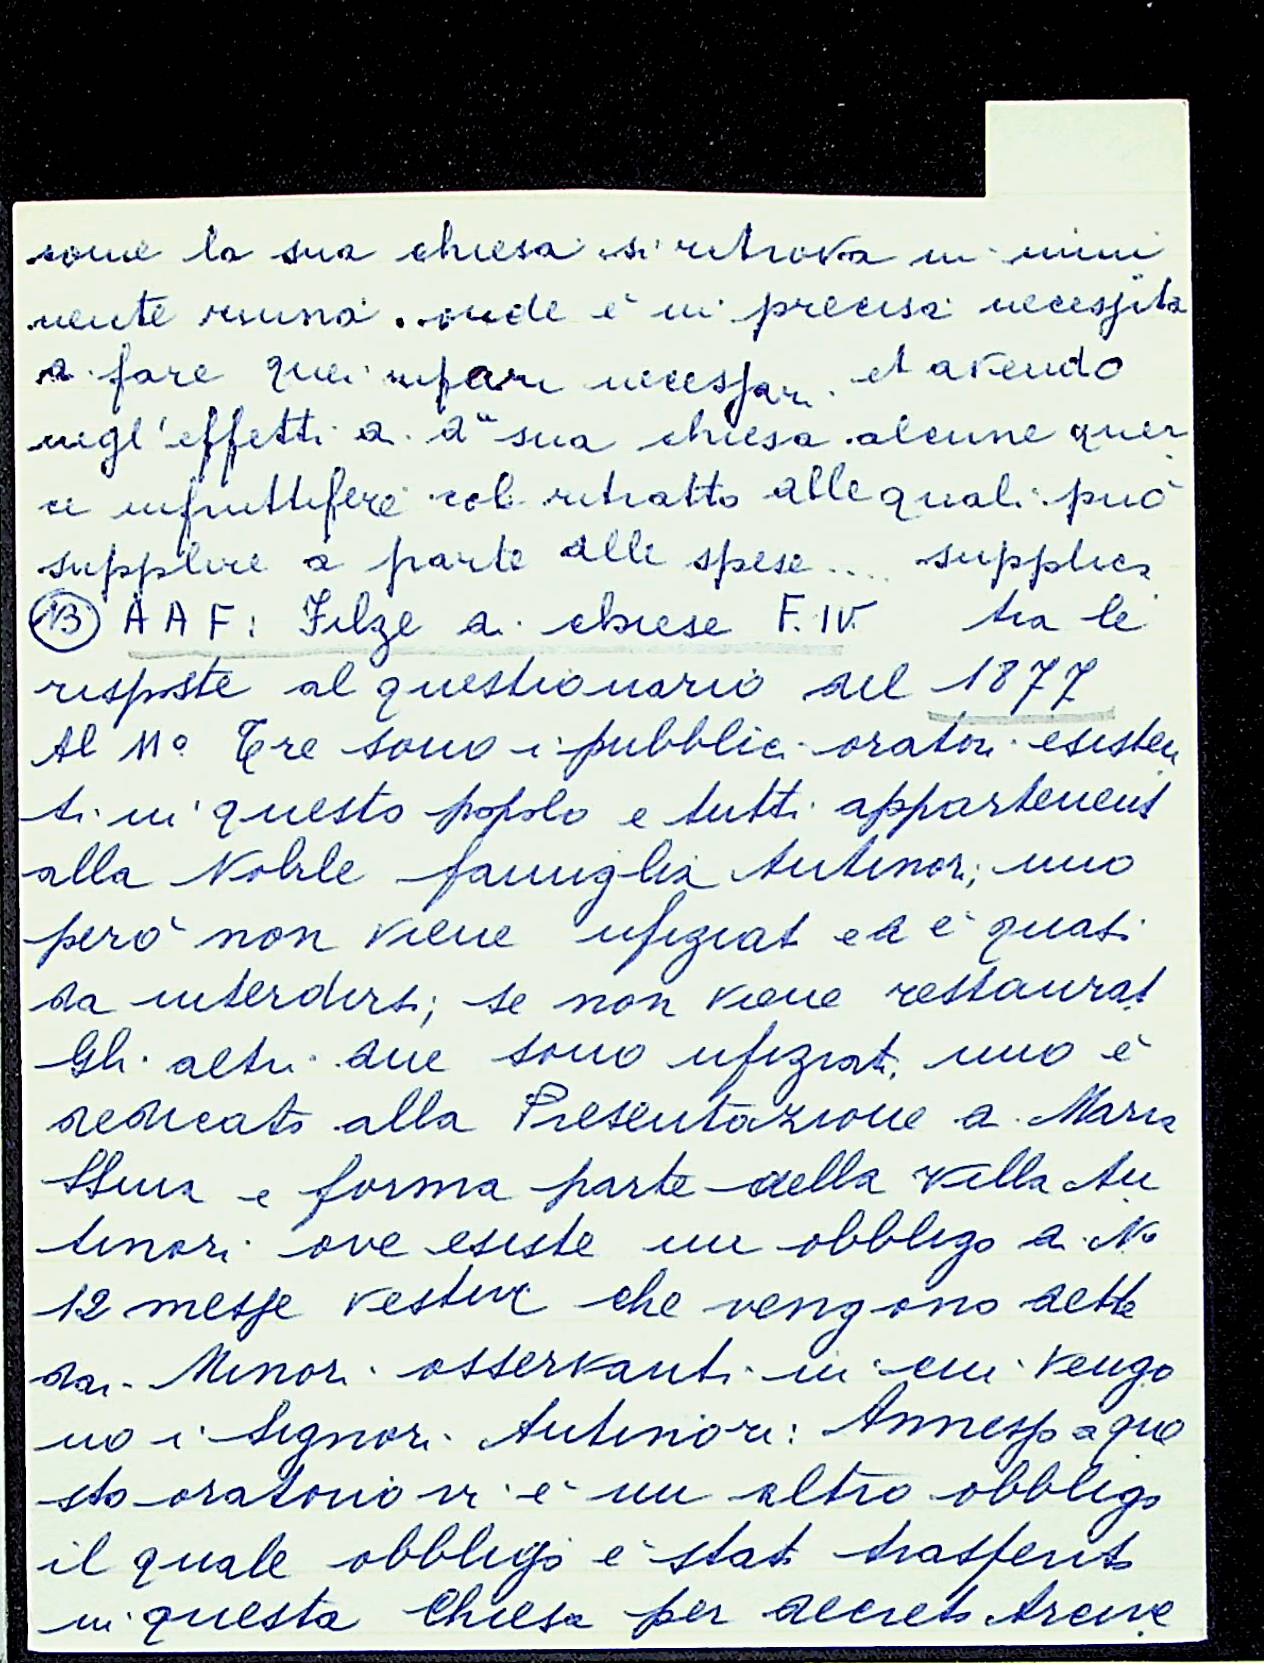 come la sua chiesa si ritrova in immi
nente ruina.. onde è in precisa necessità
di fare quei ripari necessari. et avendo
negl'effetti di da sua chiesa alcune quer
ci infruttifere col ritratto delle quali può
supplire a parte delle spese.... supplica
(13) AAF: Filze di chiese F. IV tra le
risposte al questionario del 1877
Al 11° Tre sono i pubblici oratori esisten
ti in questo popolo e tutti appartenenti
alla Nobile famiglia Antinori; uno
però non viene ufiziato ed è quasi
da interdirsi; se non viene restaurato
Gli altri due sono ufiziati, uno è
dedicato alla Presentazione di Maria
SSma e forma parte della villa An
tinori ove esiste un obbligo di No
12 messe festive che vengono dette
dai Minori osservanti in cui vengo
no i Signori Antinori: Annesso a que
sto oratorio vi è un altro obbligo
il quale obbligo è stato trasferito
in questa Chiesa per decreto Arcive